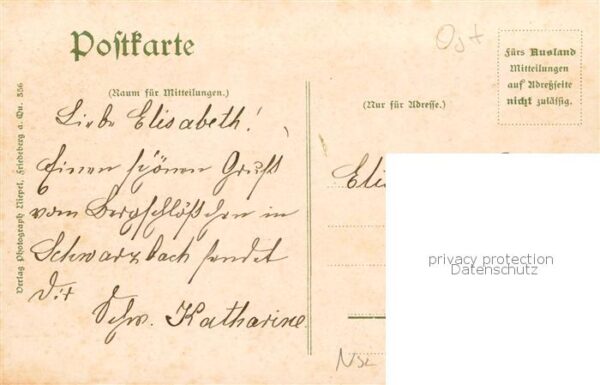 Postkarte
Ost
Fürs Ausland
Mitteilungen
auf Adreßseite
nicht zulässig.
(Raum für Mitteilungen.)
(Nur für Adresse.)
Liebe Elisabeth!
Einen schönen Gruß
vom Bergschlößchen in
Schwarzbach sendet
Dir
Schw. Katharine.
Eli
Verlag Photograph Niepel, Friedeberg a. Qu. 356
privacy protection
Datenschutz